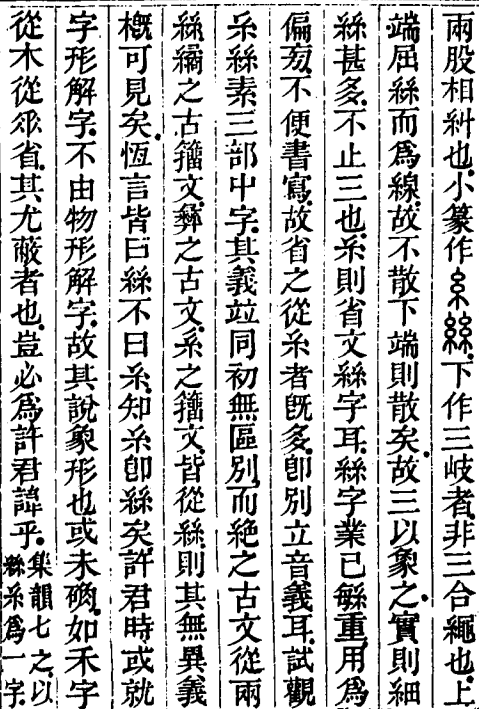 兩股相糾也小篆作糸絲下作三岐者非三合繩也上
端屈絲而爲線故不散下端則散矣故三以象之實則細
絲甚多不止三也糸則省文絲字耳絲字業已緐重用爲
偏㫄不便書寫故省之從糸者旣多卽別立音義耳試觀
糸絲素三部中字其義竝同初無區別而絕之古文從兩
絲繘之古籒文彝之古文系之籒文皆從絲則其無異義
槪可見矣恆言皆曰絲不曰糸知糸卽絲矣許君時或就
字形解字不由物形解字故其說象形也或未碻如禾字
從木從𠂹省其尤蔽者也豈必爲許君諱乎集韻七之以
絲糸爲一字